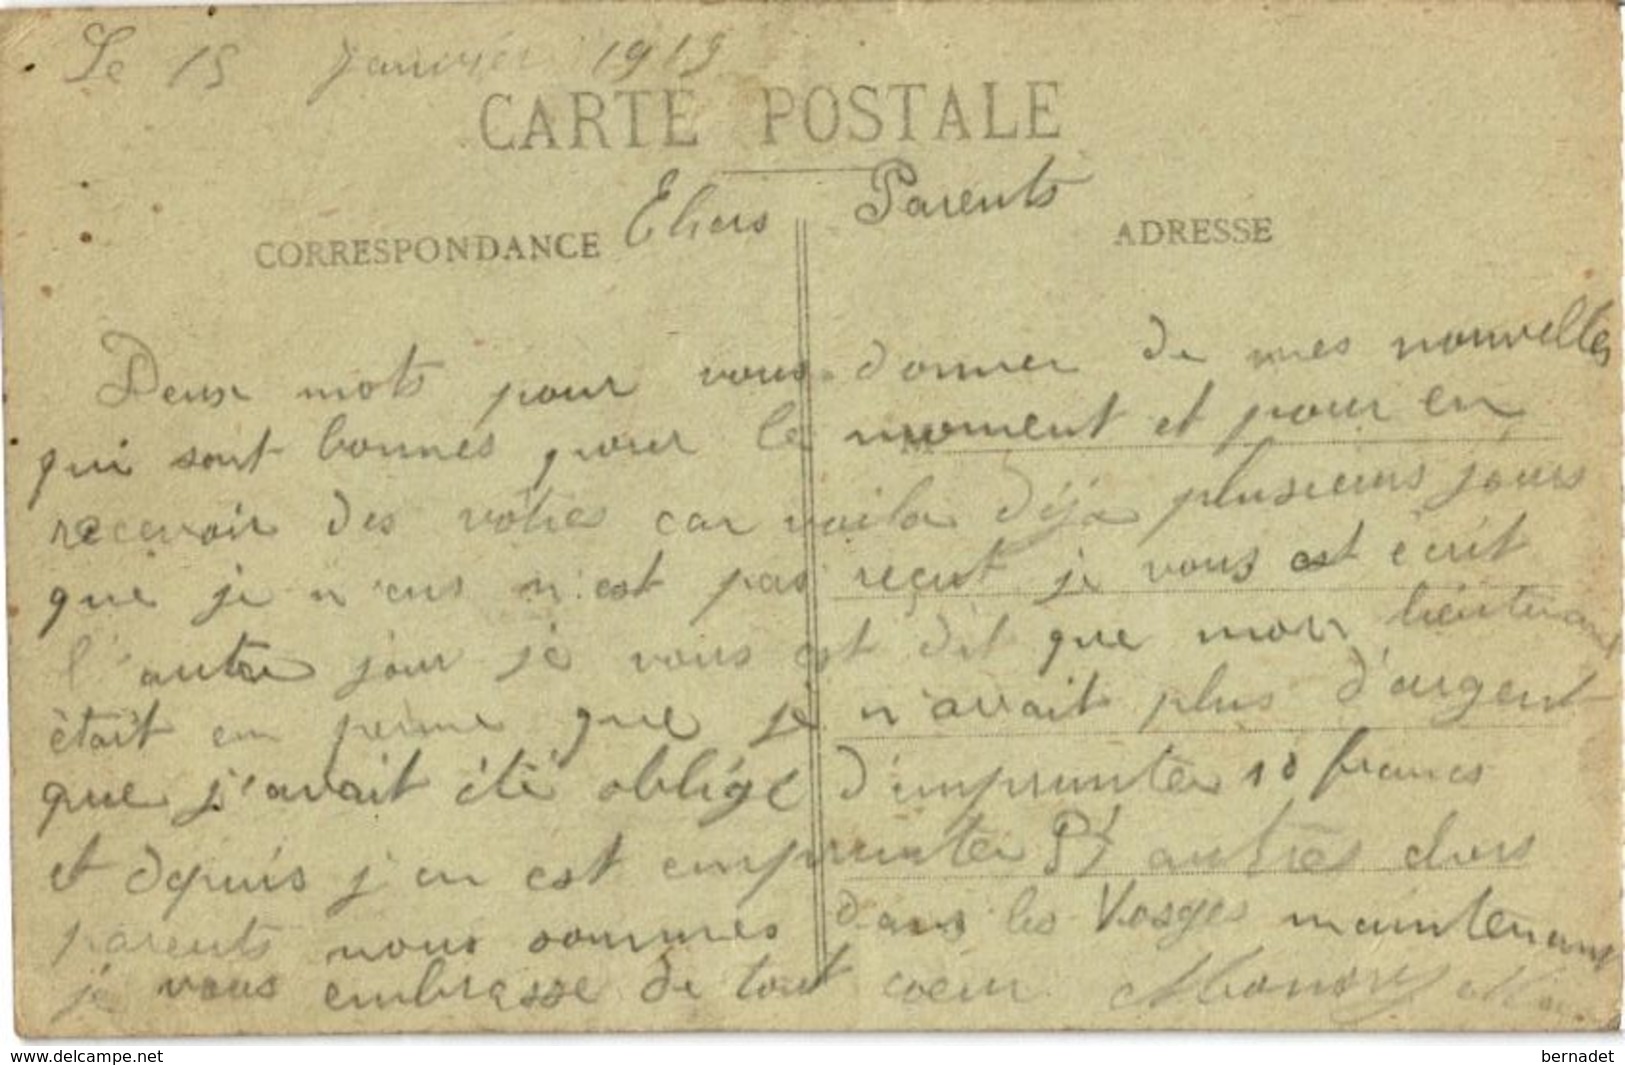 Le 15 Janvier 1915
CARTE POSTALE
CORRESPONDANCE
Chers Parents
ADRESSE
Deux mots pour vous donner de mes nouvelles
qui sont bonnes pour le moment et pour en
recevoir des vôtres car voila déja plusieurs jours
que je n'ens n'est pas reçut je vous est écrit
l'autre jour je vous est dit que mon lieutenant
était en perme que je n'avait plus d'argent
que j'avait été obligé d'imprunter 10 francs
et depuis j'en est emprunter autres chers
parents nous sommes dans les Vosges maintenant
je vous embrasse de tout coeur
www.delcampe.net
bernadet